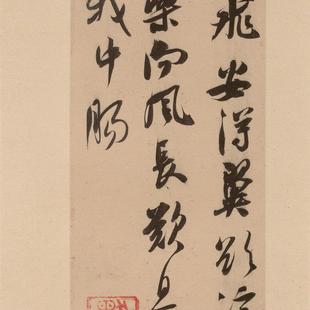 飛安得翼欲濟
梁向風長歎息
我中腸